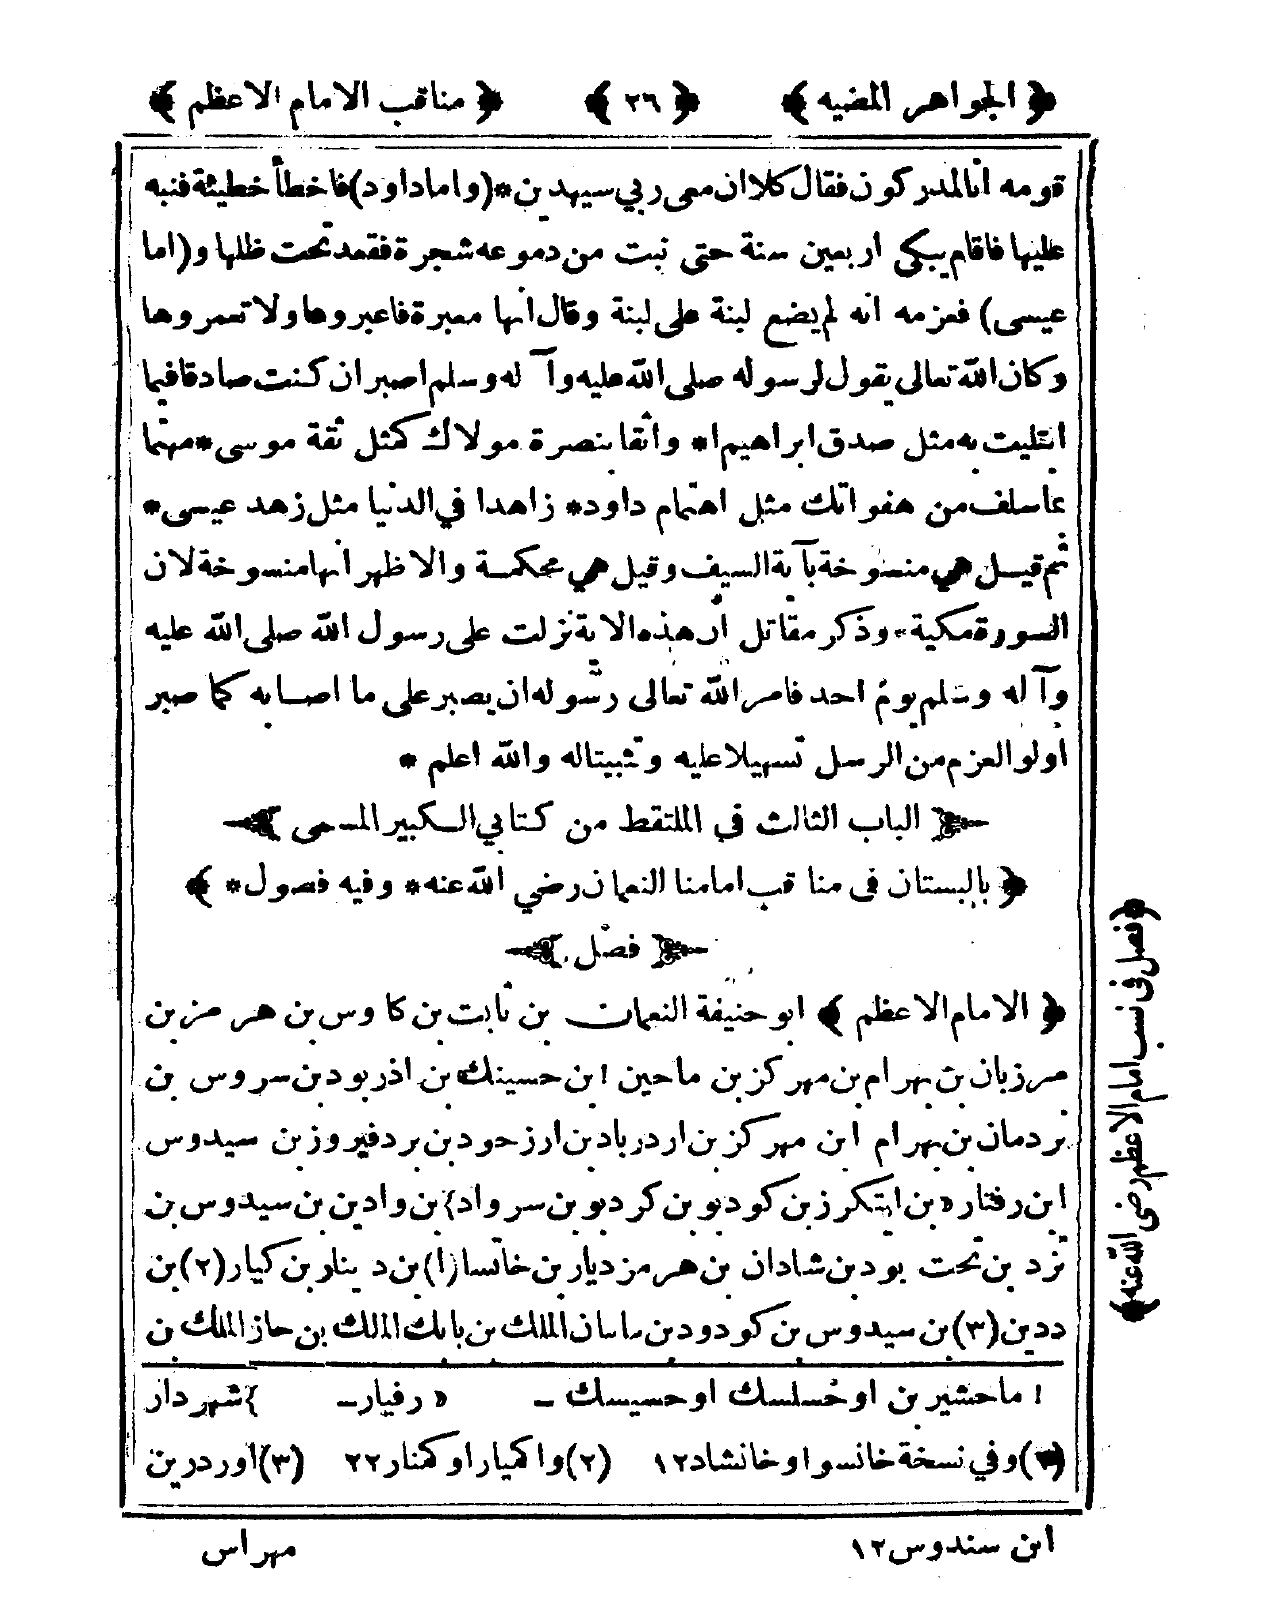 ﴿ الجواهر المضيه ﴾ ﴿ ٢٦ ﴾ ﴿ مناقب الامام الاعظم ﴾
قومه انا لمدركون فقال كلا ان معى ربي سيهدين * (واما داود) فاخطأ خطيئة فنبه
عليها فاقام يبكى اربعين سنة حتى نبت من دموعه شجرة فقعد تحت ظلها و(اما
عيسى) فعزمه انه لم يضع لبنة على لبنة وقال انها معبرة فاعبروها ولا تعمروها
وكان الله تعالى يقول لرسوله صلى الله عليه وآله وسلم اصبر ان كنت صادقا فيما
ابتليت به مثل صدق ابراهيم ا* واثقا بنصرة مولاك كمثل ثقة موسى * مهتما
بما سلف من هفواتك مثل اهتمام داود * زاهدا في الدنيا مثل زهد عيسى *
ثم قيل هي منسوخة بآية السيف وقيل هي محكمة والاظهر انها منسوخة لان
السورة مكية * وذكر مقاتل ان هذه الاية نزلت على رسول الله صلى الله عليه
وآله وسلم يوم احد فامر الله تعالى رسوله ان يصبر على ما اصابه كما صبر
اولو العزم من الرسل تسهيلا عليه وتثبيتا له والله اعلم *
الباب الثالث في الملتقط من كتابي الكبير المسمى
﴿ بالبستان في مناقب امامنا النعمان رضي الله عنه * وفيه فصول * ﴾
فصل
﴿ الامام الاعظم ﴾ ابو حنيفة النعمان بن ثابت بن كاوس بن هرمز بن
مرزبان بن بهرام بن مهركز بن ماحين ا بن حسينك ٥ بن اذربود بن سروس بن
بردمان بن بهرام ابن مهركز بن اردرباد بن ارزحود بن بردفيروز بن سيدوس
ابن رفتار ٥ بن ايتكرز بن كوديو بن كرديو بن سرواد } بن وادين بن سيدوس بن
نزد بن تحت بود بن شادان بن هرمزديار بن خانسا (١) بن دينار بن كيار (٢) بن
ددين (٣) بن سيدوس بن كودود بن ساسان الملك بن بابك المالك بن حاز الملك بن
ا ماحشير بن اوخسلسك اوحسيسك – ٥ رفيار – } شهردار
(١) وفي نسخة خانسوا وخانشاد ١٢ (٢) واكميار اوكمنار ٢٢ (٣) اوردرين
ابن سندوس ١٢
مهراس
﴿ فصل فى نسب امام الاعظم رضى الله عنه ﴾